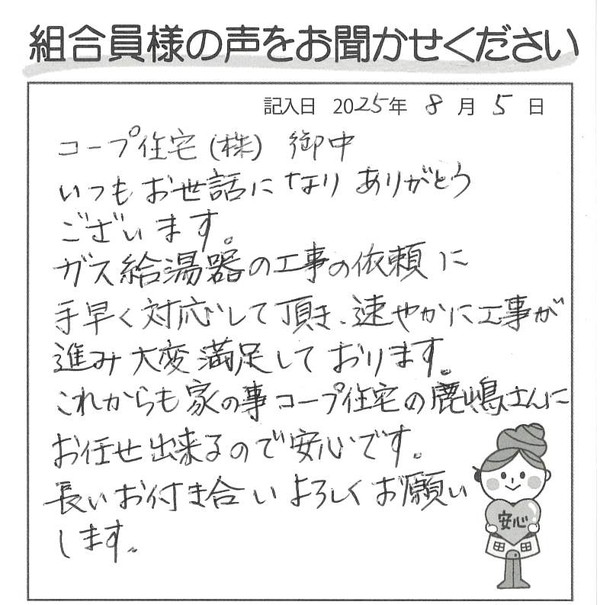 組合員様の声をお聞かせください
記入日 2025年 8月 5日
コープ住宅(株) 御中
いつもお世話になりありがとう
ございます。
ガス給湯器の工事の依頼に
手早く対応して頂き、速やかに工事が
進み大変満足しております。
これからも家の事コープ住宅の鹿嶋さんに
お任せ出来るので安心です。
長いお付き合いよろしくお願い
します。
安心